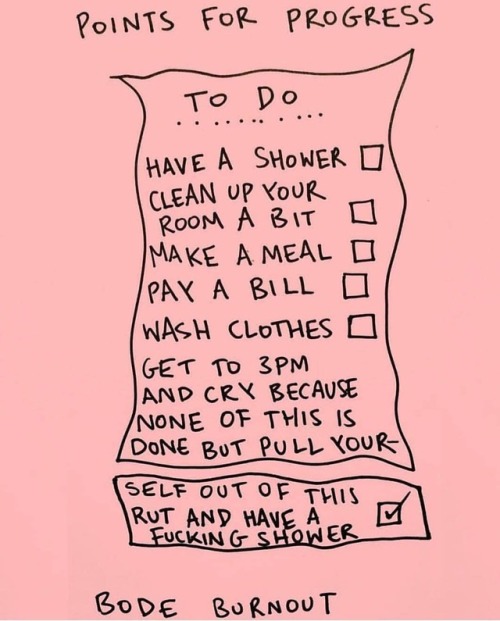 POINTS FOR PROGRESS
TO DO
HAVE A SHOWER
CLEAN UP YOUR
ROOM A BIT
MAKE A MEAL
PAY A BILL
WASH CLOTHES
GET TO 3PM
AND CRY BECAUSE
NONE OF THIS IS
DONE BUT PULL YOUR-
SELF OUT OF THIS
RUT AND HAVE A
FUCKING SHOWER
BODE BURNOUT